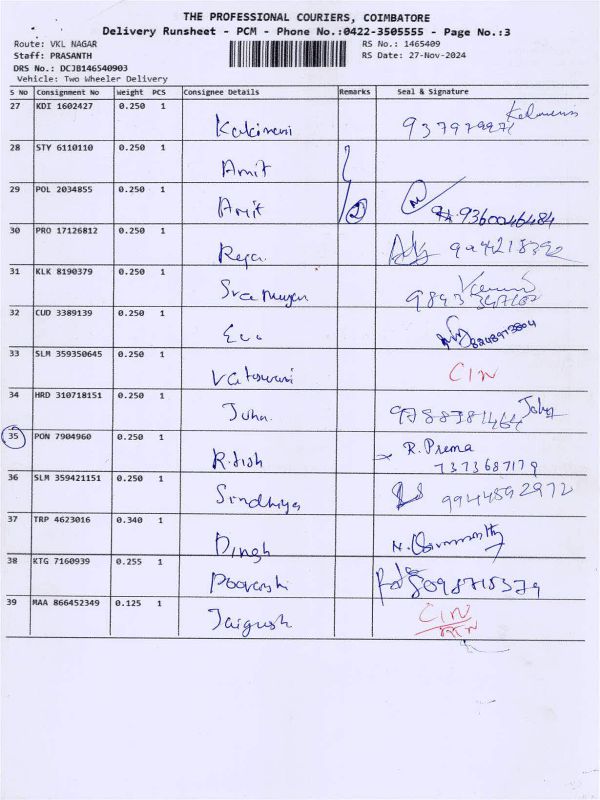 THE PROFESSIONAL COURIERS, COIMBATORE
Delivery Runsheet - PCM - Phone No.:0422-3505555 - Page No.:3
Route: VKL NAGAR
RS No.: 1465409
Staff: PRASANTH
RS Date: 27-Nov-2024
DRS No.: DCJB146540903
Vehicle: Two Wheeler Delivery
S No Consignment No Weight PCS Consignee Details Remarks Seal & Signature
27 KDI 1602427 0.250 1
28 STY 6110110 0.250 1
Amit
29 POL 2034855 0.250 1
Amit 2 9360046484
30 PRO 17126812 0.250 1
Reja
31 KLK 8190379 0.250 1
32 CUD 3389139 0.250 1
8248973804
33 SLM 359350645 0.250 1
CIN
34 HRD 310718151 0.250 1
Juha. John
35 PON 7904960 0.250 1
Ritish R. Prema
7373687179
36 SLM 359421151 0.250 1
Sindhiya 9944592972
37 TRP 4623016 0.340 1
Dingh
38 KTG 7160939 0.255 1
8098718379
39 MAA 866452349 0.125 1
CIN